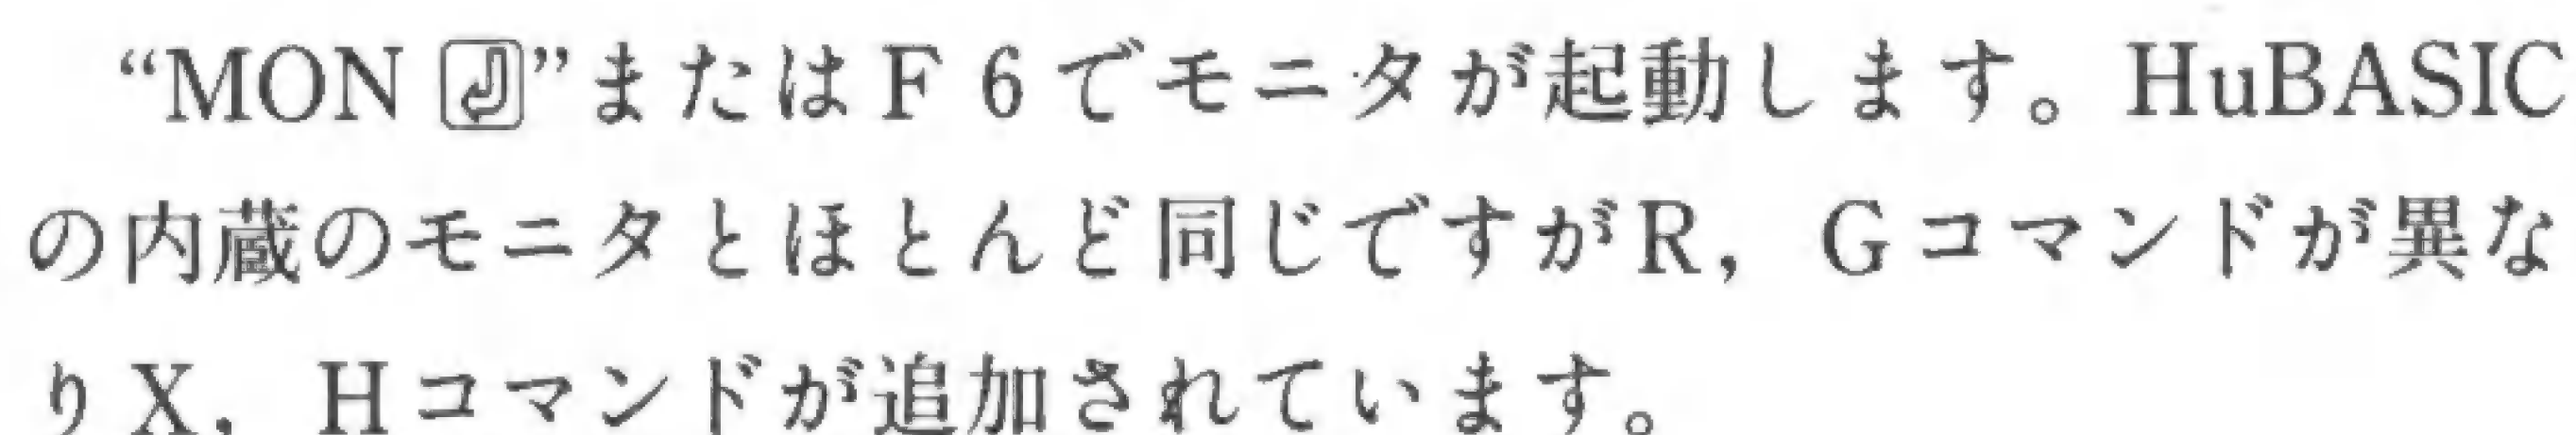 “MON ⏎”またはF6でモニタが起動します。HuBASIC
の内蔵のモニタとほとんど同じですがR，Gコマンドが異な
りX，Hコマンドが追加されています。